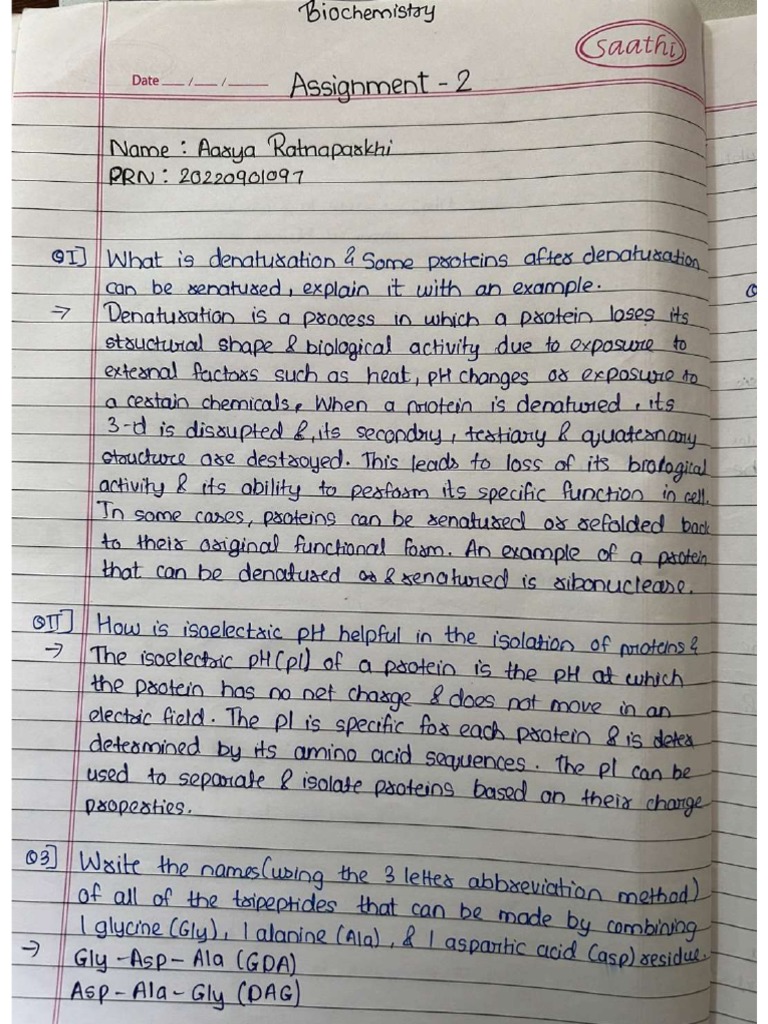 Biochemistry
Saathi
Date __/__/____ Assignment - 2
Name : Aarya Ratnaparkhi
PRN : 20220901097
QI] What is denaturation & Some proteins after denaturation
can be renatured, explain it with an example.
→ Denaturation is a process in which a protein loses its
structural shape & biological activity due to exposure to
external factors such as heat, pH changes or exposure to
a certain chemicals, When a protein is denatured, its
3-d is disrupted &, its secondry, tertiary & quaternary
structure are destroyed. This leads to loss of its biological
activity & its ability to perform its specific function in cell.
In some cases, proteins can be renatured or refolded back
to their original functional form. An example of a protein
that can be denatured & renatured is ribonuclease.
QII] How is isoelectric pH helpful in the isolation of proteins &
→ The isoelectric pH(pI) of a protein is the pH at which
the protein has no net charge & does not move in an
electric field. The pI is specific for each protein & is
determined by its amino acid sequences. The pI can be
used to separate & isolate proteins based on their charge
properties.
Q3] Write the names(using the 3 letter abbreviation method)
of all of the tripeptides that can be made by combining
1 glycine (Gly), 1 alanine (Ala), & 1 aspartic acid (asp) residue.
→ Gly - Asp - Ala (GDA)
Asp - Ala - Gly (DAG)